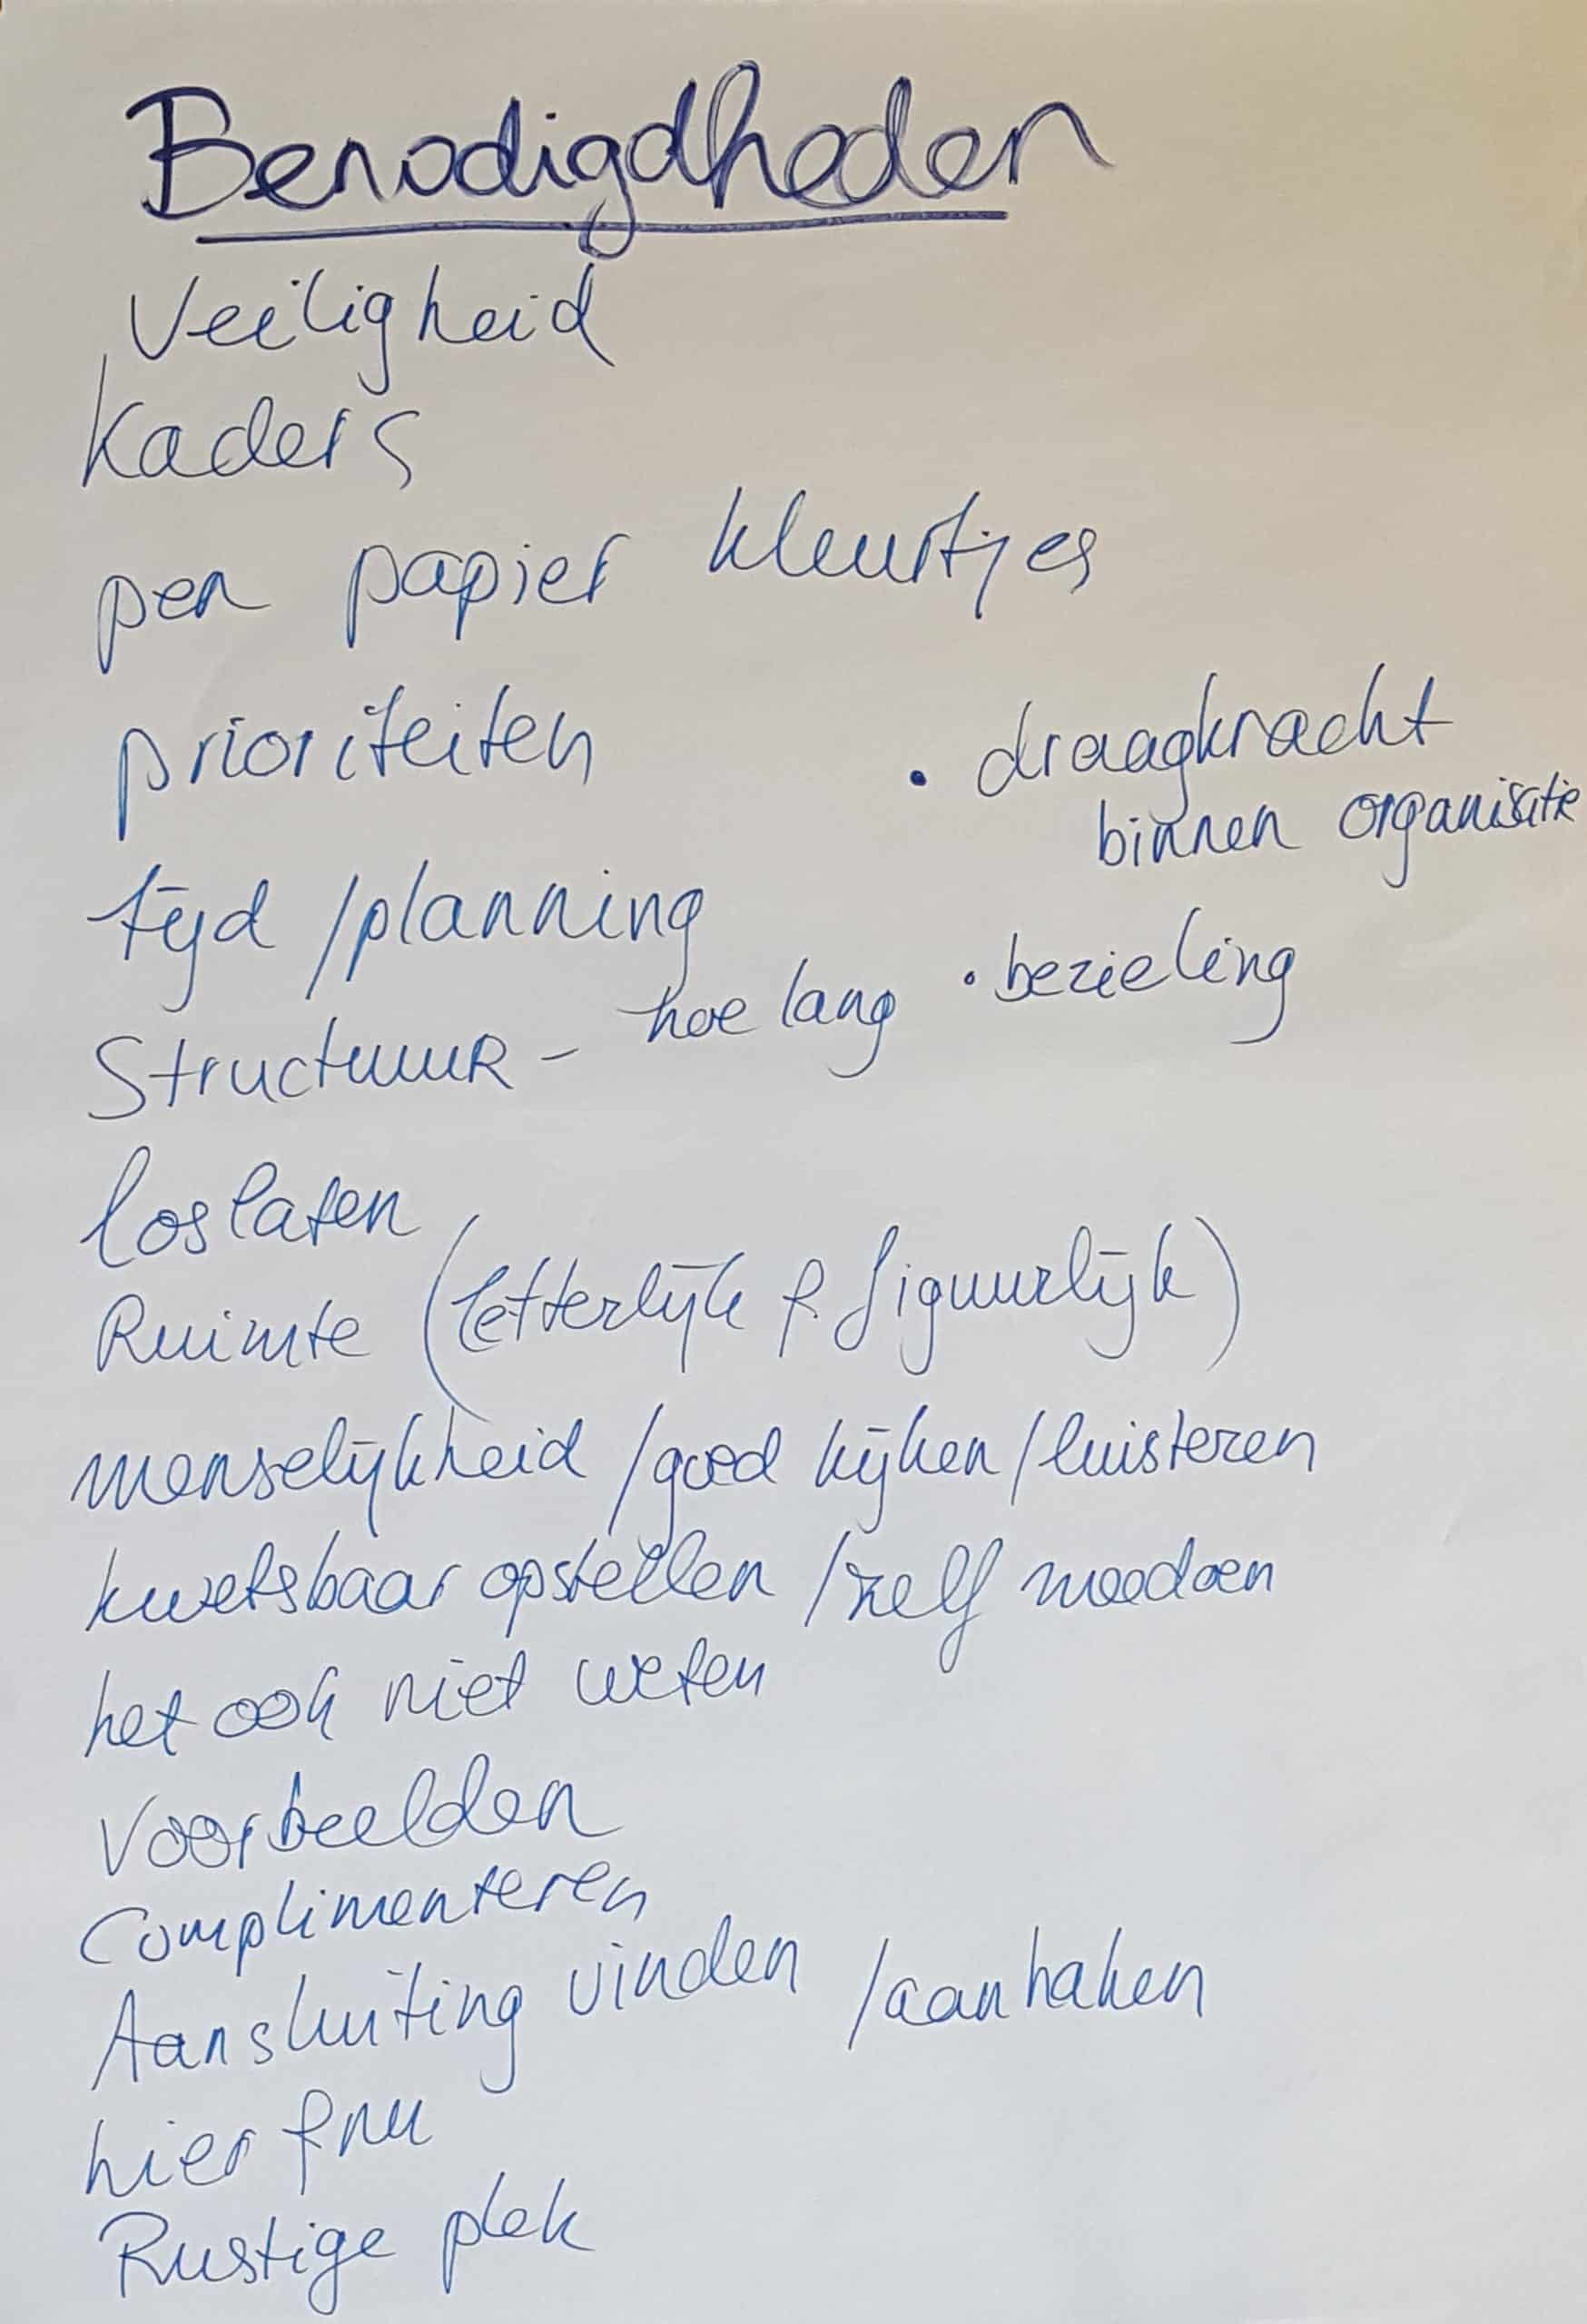 Benodigdheden
Veiligheid
Kaders
pen papier kleurtjes
prioriteiten
• draagkracht
binnen organisatie
tijd /planning
• bezieling
Structuur - hoe lang
loslaten
Ruimte (letterlijk & figuurlijk)
menselijkheid /goed kijken /luisteren
kwetsbaar opstellen /zelf meedoen
het ook niet weten
Voorbeelden
Complimenteren
Aansluiting vinden /aanhaken
hier & nu
Rustige plek